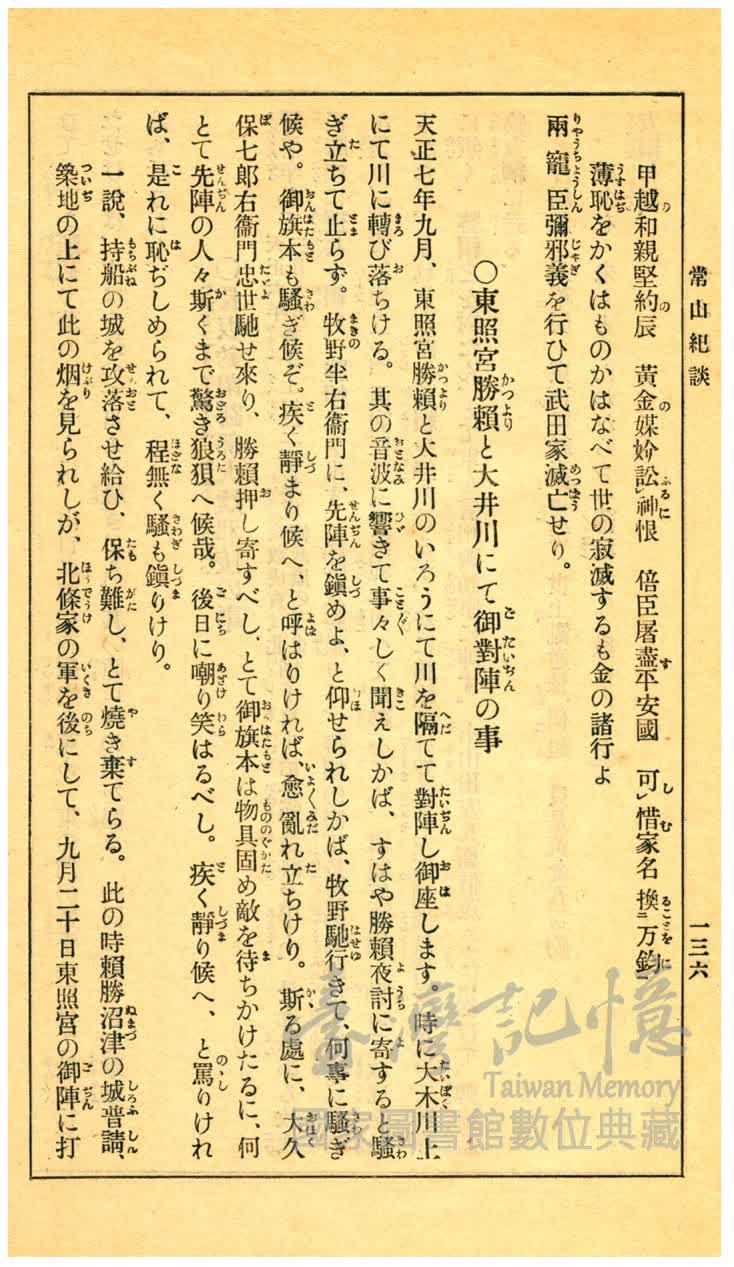 常山紀談
一三六
甲越和親堅約辰　黃金媒妁訟神恨　倍臣屠盡平安國　可惜家名換万鈞
薄恥をかくはものかはなべて世の寂滅するも金の諸行よ
兩寵臣彌邪義を行ひて武田家滅亡せり。
〇東照宮勝賴と大井川にて御對陣の事
天正七年九月、東照宮勝賴と大井川のいろうにて川を隔てて對陣し御座します。時に大木川上
にて川に轉び落ちける。其の音波に響きて事々しく聞えしかば、すはや勝賴夜討に寄すると騷
ぎ立ちて止らず。牧野半右衞門に、先陣を鎭めよ、と仰せられしかば、牧野馳行きて、何事に騷ぎ
候や。御旗本も騷ぎ候ぞ。疾く靜まり候へ、と呼はりければ、愈亂れ立ちけり。斯る處に、大久
保七郎右衞門忠世馳せ來り、勝賴押し寄すべし、とて御旗本は物具固め敵を待ちかけたるに、何
とて先陣の人々斯くまで驚き狼狽へ候哉。後日に嘲り笑はるべし。疾く靜り候へ、と罵りけれ
ば、是れに恥ぢしめられて、程無く騷も鎭りけり。
一說、持船の城を攻落させ給ひ、保ち難し、とて燒き棄てらる。此の時賴勝沼津の城普請、
築地の上にて此の烟を見られしが、北條家の軍を後にして、九月二十日東照宮の御陣に打
臺灣記憶
Taiwan Memory
國家圖書館數位典藏